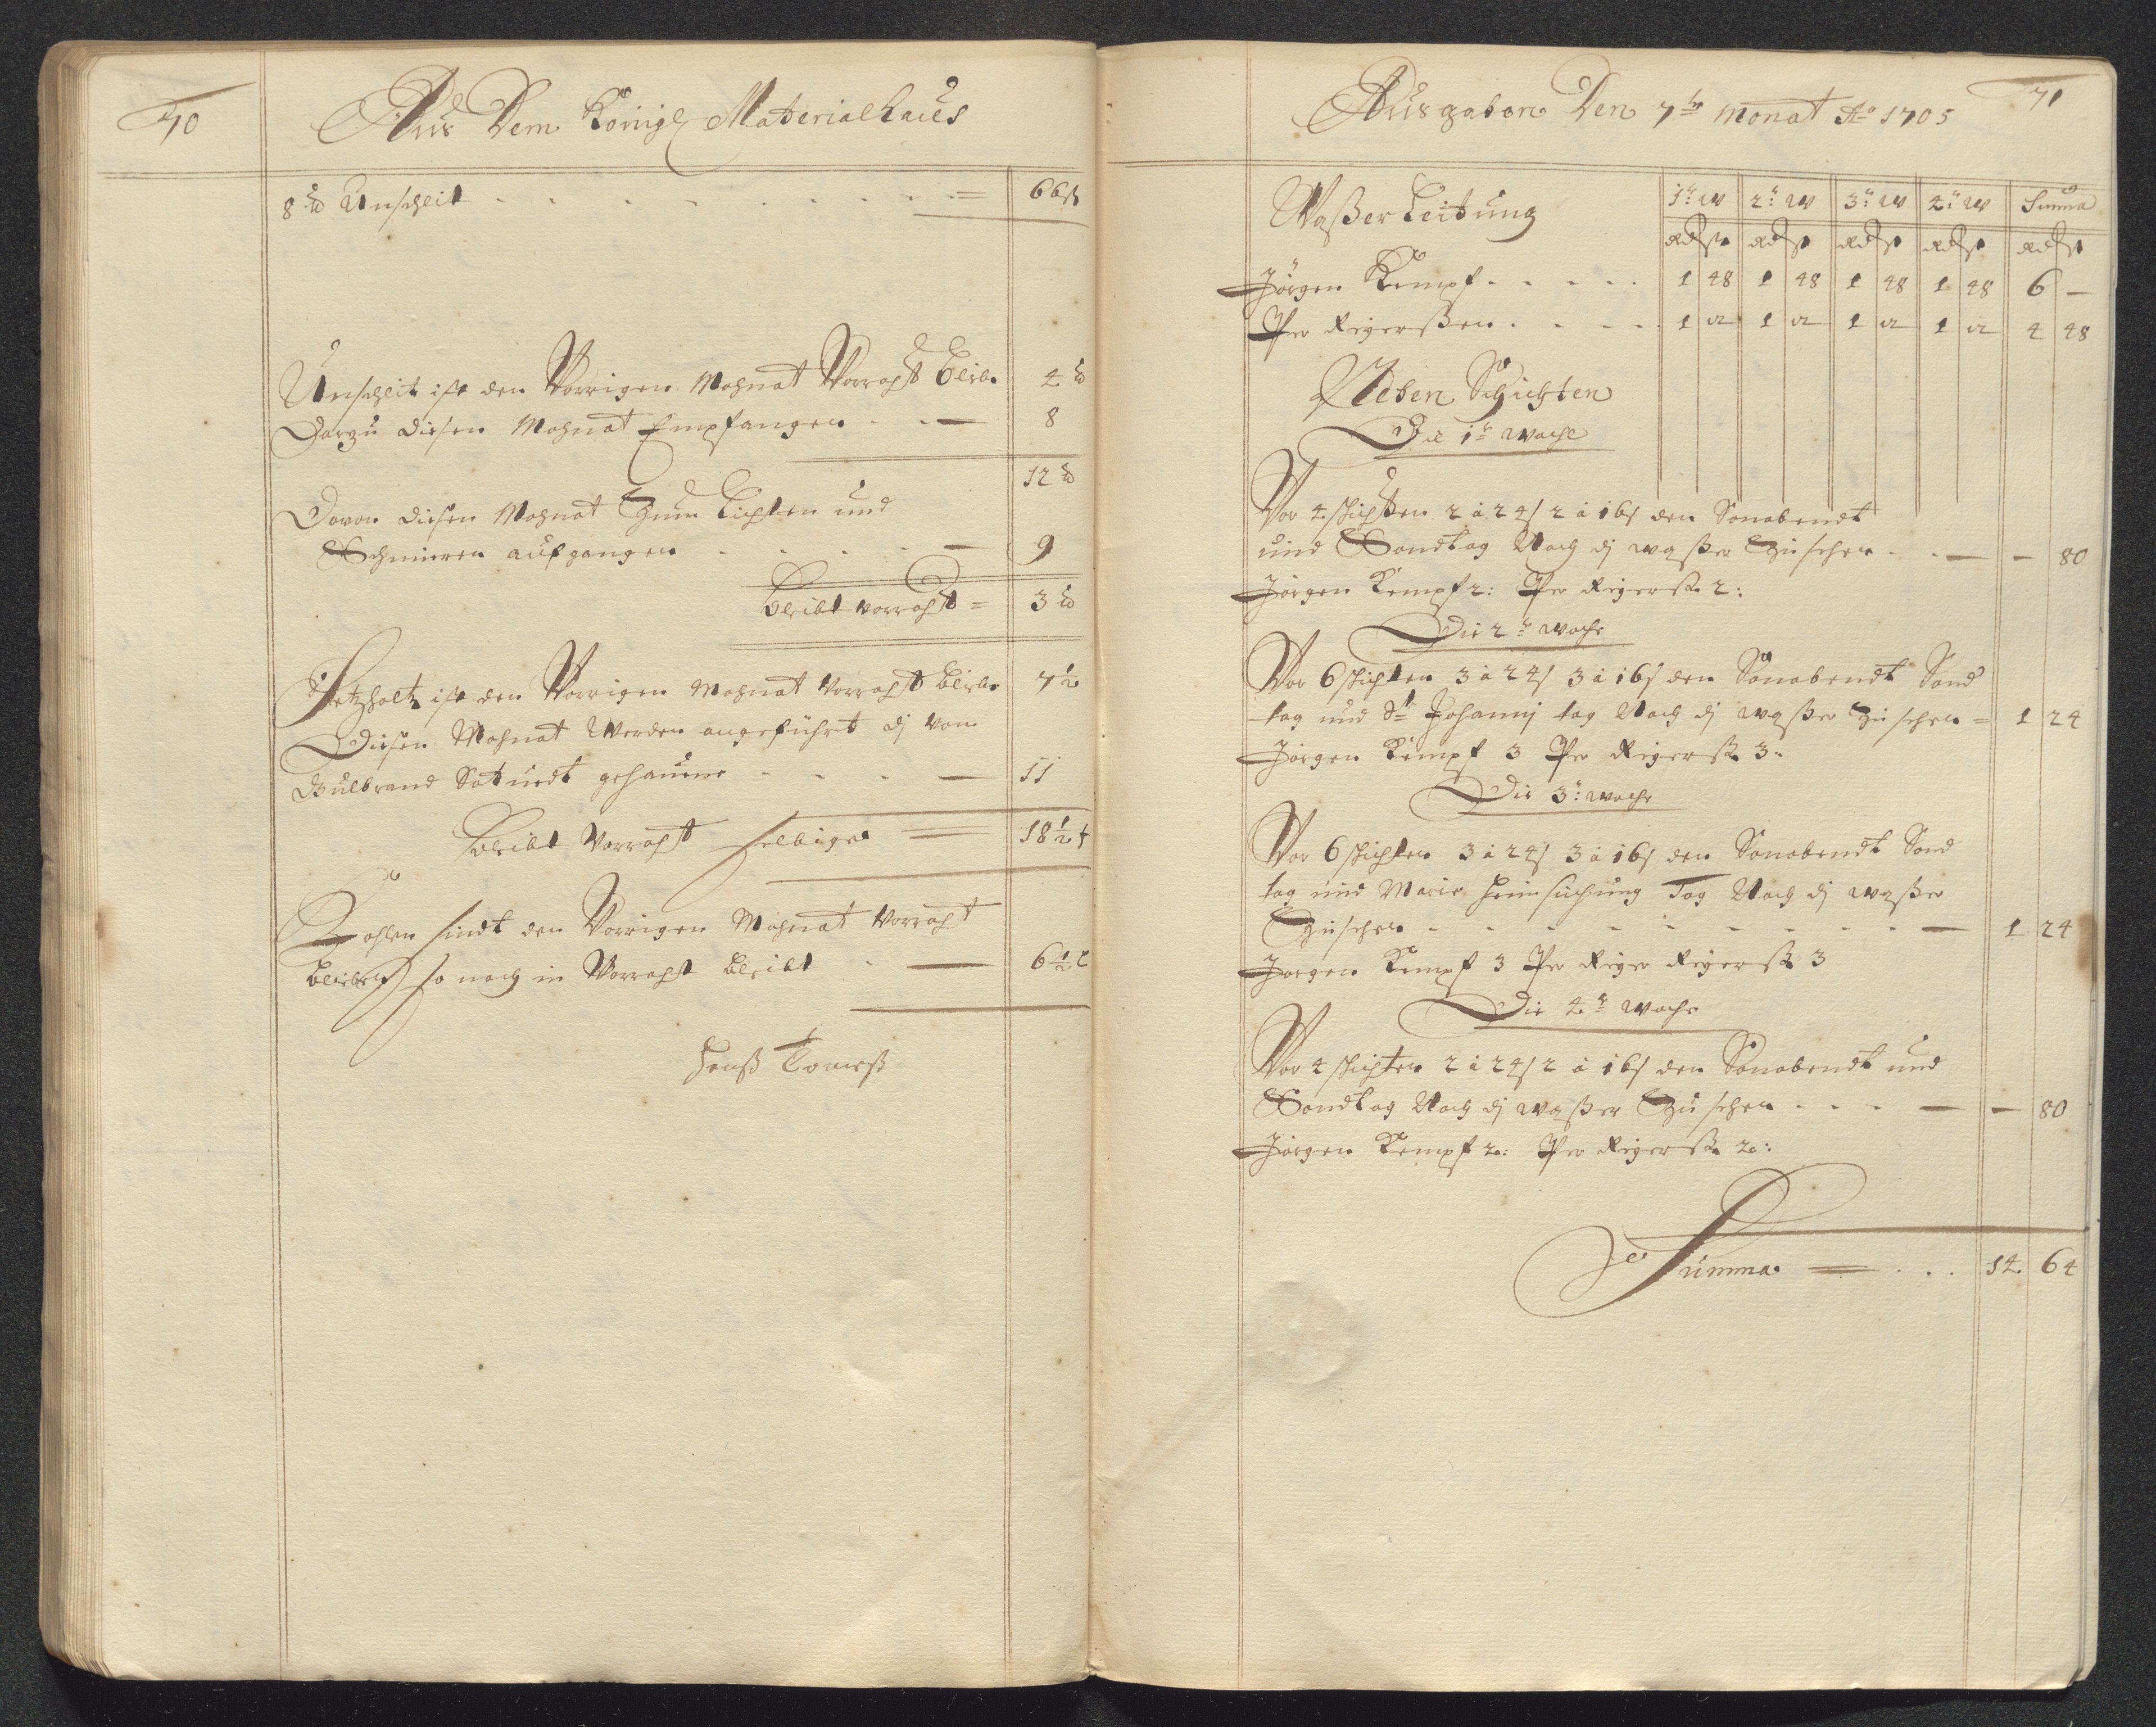 70
Aus Dem Königl Materialhaus
8 ℔ Unscheit - - - - - - - - = 66 ß
Unscheit ist den Vorrigen Mohnat Vorraht bleibn 4 ℔
Darzu diesen Mohnat Empfangen - - — 8
12 ℔
Davon diesen Mohnat Zum Lichten und
Schmieren aufgangen - - - - — 9
bleibt vorraht = 3 ℔
Setzholtz ist den Vorrigen Mohnat vorraht bleibn 7½
Diesen Mohnat Werden angeführt dj von
Gulbrand Satuedt gehauene - - - — 11
bleibt Vorraht selbiger = 18½ t
Kohlen sindt den Vorrigen Mohnat vorraht
bleiben so noch in Vorraht bleibt - — 6½ l
Hanß Tomeß
71
Ausgaben Den 7tn Monat Ao 1705
Waßer Leitung
1: W 2: W 3: W 4: W Summa
Rdß Rdß Rdß Rdß Rdß
Jörgen Kempf - - - - - 1 48 1 48 1 48 1 48 6 —
Per Reyerßen - - - - 1 12 1 12 1 12 1 12 4 48
Neben Schichten
Die 1te wache
Vor 4 schichten 2 à 24ß 2 à 16ß den Sonabendt
und Sondtag Nach dj waßer Zu sehen - - — — 80
Jörgen Kempf 2: Per Reyerß 2:
Die 2te woche
Vor 6 schichten 3 à 24ß 3 à 16ß den Sonabendt Sond
tag und St Johannj tag Nach dj waßer Zu sehen = 1 24
Jörgen Kempf 3 Per Reyerß 3:
Die 3: woche
Vor 6 schichten 3 à 24ß 3 à 16ß den Sonabendt Sond
tag und Marie Heimsuchung Tag Nach dj waßer
Zu sehen - - - - - - - - — 1 24
Jörgen Kempf 3 Per Reyer Reyerß 3
Die 4te woche
Vor 4 schichten 2 à 24ß 2 à 16ß den Sonabendt und
Sondtag Nach dj waßer Zu sehen - - - — — 80
Jörgen Kempf 2: Per Reyerß 2:
Summa = . . . 14 64